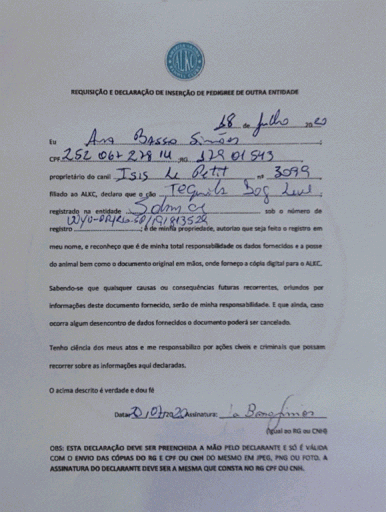 ALKC
REQUISIÇÃO E DECLARAÇÃO DE INSERÇÃO DE PEDIGREE DE OUTRA ENTIDADE
18 de Julho 2020
Eu Ana Basso Simões
CPF 252 067 278 14 RG 179 01543
proprietário do canil Isis Le Petit nº 3099
filiado ao ALKC, declaro que o cão Tequila Dog
registrado na entidade Sobraci sob o número de
registro é de minha propriedade, autorizo que seja feito o registro em
meu nome, e reconheço que é de minha total responsabilidade os dados fornecidos e a posse
do animal bem como o documento original em mãos, onde forneço a cópia digital para o ALKC.
Sabendo-se que quaisquer causas ou consequências futuras recorrentes, oriundos por
informações deste documento fornecido, serão de minha responsabilidade. E que ainda, caso
ocorra algum desencontro de dados fornecidos o documento poderá ser cancelado.
Tenho ciência dos meus atos e me responsabilizo por ações civeis e criminais que possam
recorrer sobre as informações aqui declaradas.
O acima descrito é verdade e dou fé
Data: Assinatura:
(igual ao RG ou CNH)
OBS: ESTA DECLARAÇÃO DEVE SER PREENCHIDA A MÃO PELO DECLARANTE E SÓ É VÁLIDA
COM O ENVIO DAS CÓPIAS DO RG E CPF OU CNH DO MESMO EM JPEG, PNG OU FOTO. A
ASSINATURA DO DECLARANTE DEVE SER A MESMA QUE CONSTA NO RG CPF OU CNH.